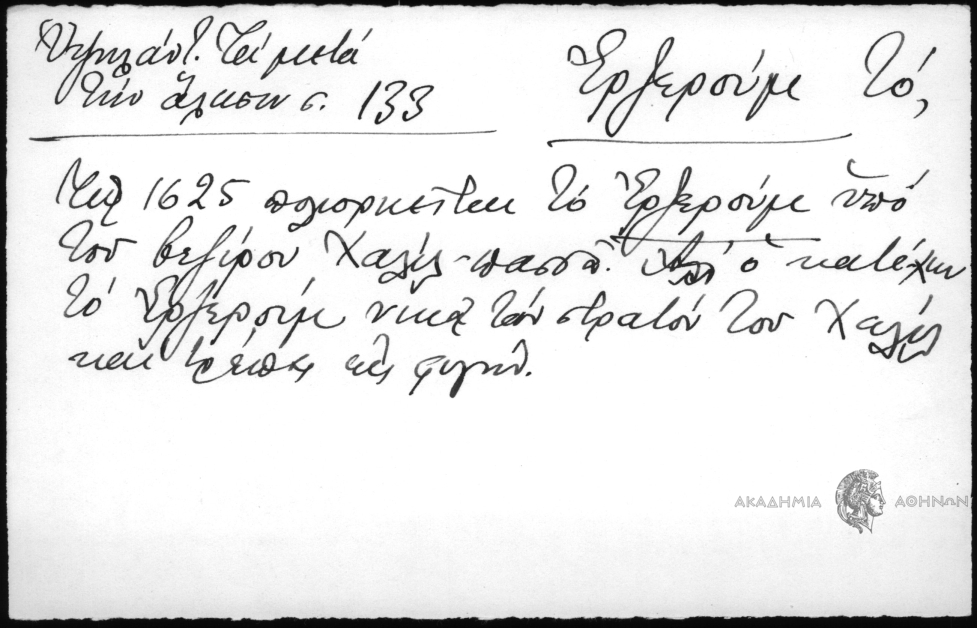 Ὑψηλάντ. Τά μετά
τήν ἅλωσιν σ. 133
Ἐρζερούμ Τό,
Τῷ 1625 πολιορκεῖται τό Ἐρζερούμ ὑπό
τοῦ βεζίρου Χαλήλ-πασσᾶ. ὁ κατέχων
τό Ἐρζερούμ νικᾷ τόν στρατόν του Χαλήλ
καί τρέπει εἰς φυγήν.
ΑΚΑΔΗΜΙΑ ΑΘΗΝΩΝ